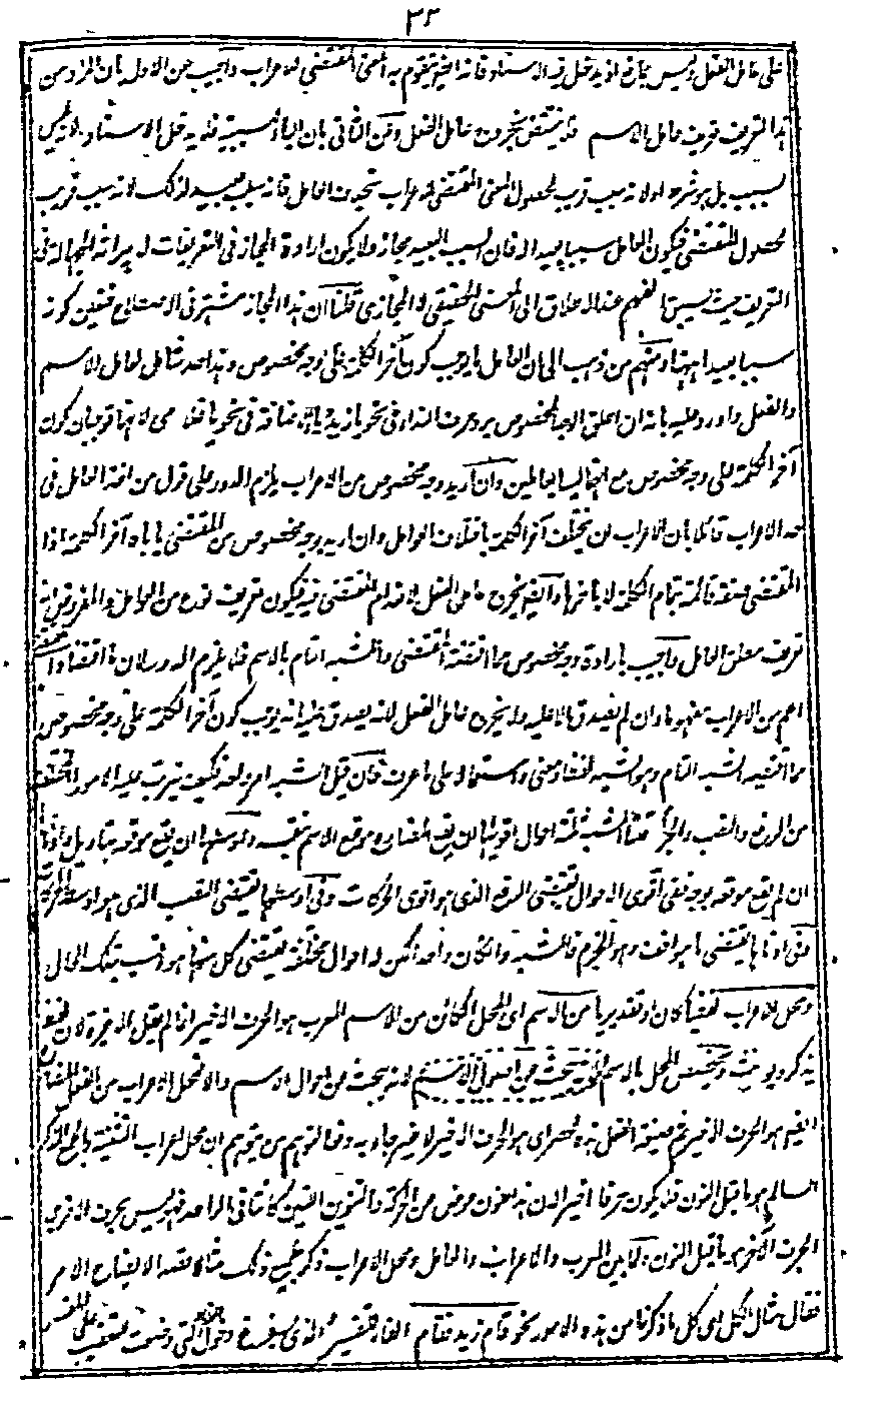 ٣٢
على عامل الفعل وليس بمانع اذ يدخل فيه الاسناد فانه ايضا يتقوم به المعنى المقتضي للاعراب واجيب عن الاول بان المراد من
هذا التعريف تعريف عامل الاسم فلا ينتقض بخروج عامل الفعل وعن الثاني بان الباء للسببية فلا يدخل الاسناد لانه ليس
لسبب بل هو شرط اولا نه سبب قريب لحصول المعنى المقتضي للاعراب بخلاف العامل فانه سبب بعيد لذلك لانه سبب قريب
لحصول المقتضي فيكون العامل سببا بعيدا فان السبب البعيد مجاز ولا يكون ارادة المجاز في التعريفات
التعريف حيث يسبق الفهم عند الاطلاق الى المعنى الحقيقي لا المجازي قلنا ان هذا المجاز مشتهر في الاصطلاح فتعين كونه
سببا بعيدا ههنا ومنهم من ذهب الى ان العامل ما يوجب كون آخر الكلمة على وجه مخصوص وهذا الحد شامل لعامل الاسم
والفعل واورد عليه بانه ان اطلق الوجه المخصوص يرد حرف النداء في نحو يا زيد وياء الاضافة في نحو يا غلامي لانهما يوجبان كون
آخر الكلمة على وجه مخصوص مع انهما ليسا بعاملين وان اريد وجه مخصوص من الاعراب يلزم الدور على قول من اخذ العامل في
حد الاعراب قائلا بان الاعراب ان يختلف آخر الكلمة باختلاف العوامل وان اريد وجه مخصوص من المقتضي يأباه آخر الكلمة اذا
المقتضي صفة قائمة بتمام الكلمة لا بآخرها وايضا يخرج عامل الفعل لانعدام المقتضي فيه فيكون تعريف نوع من العوامل والمفروض انه
تعريف مطلق العامل واجيب بارادة وجه مخصوص مما اقتضته المقتضي والشبه التام بالاسم فلا يلزم الدور لان ما اقتضاه
اعم من الاعراب مفهوما وان لم يصدق الا عليه ولا يخرج عامل الفعل لانه يصدق عليه انه يوجب كون آخر الكلمة على وجه مخصوص
مما اقتضيه الشبه التام وهو الشبه لفظا ومعنى واستعمالا على ما عرف فان قيل الشبه امر واحد فكيف يترتب عليه الامور المختلفة
من الرفع والنصب والجزم قلنا للشبه ثلثة احوال اقوٰيها ان يقع المضارع موقع الاسم بنفسه واوسطها ان يقع موقعه بتاويل وادناها
ان لم يقع موقعه بوجه ففي اقوى الاحوال يقتضي الرفع الذي هو اقوى الحركات وفي اوسطها يقتضي النصب الذي هو اوسط الحركات
وفي ادناها يقتضي ما يوافقه وهو الجزم فالشبه وان كان واحدا لكن له احوال مختلفة يقتضي كل منها ما يناسب تلك الحال
ومحل الاعراب لفظيا كان او تقديريا من الاسم اي المحل الكائن من الاسم المعرب هو الحرف الاخير انما لم يقل الاخيرة لان الحرف
يذكر ويونث وتخصيص المحل بالاسم لانه يبحث من احوال الاسم والا فمحل الاعراب من الفعل المضارع
ايضا هو الحرف الاخير ثم صيغة الفصل هذه للحصر اي هو الحرف الاخير لا غير جاء به دفعا لتوهم من يتوهم ان محل اعراب التثنية والجمع المذكر
السالم هو ما قبل النون فلا يكون حرفا اخيرا لان هذا النون عوض من الحركة والتنوين اللذين كانتا في الواحد فهو ليس بحرف اخر بل
الحرف الآخر هو ما قبل النون ولما بين المعرب والاعراب والعامل ومحل الاعراب ذكر لجميع ذلك مثالا لقصد الايضاح الامر
فقال مثال الكل اي كل ما ذكرنا من هذه الامور نحو قام زيد فقام الفاء للتفسير الذي وضعت للتعقيب على المفسر